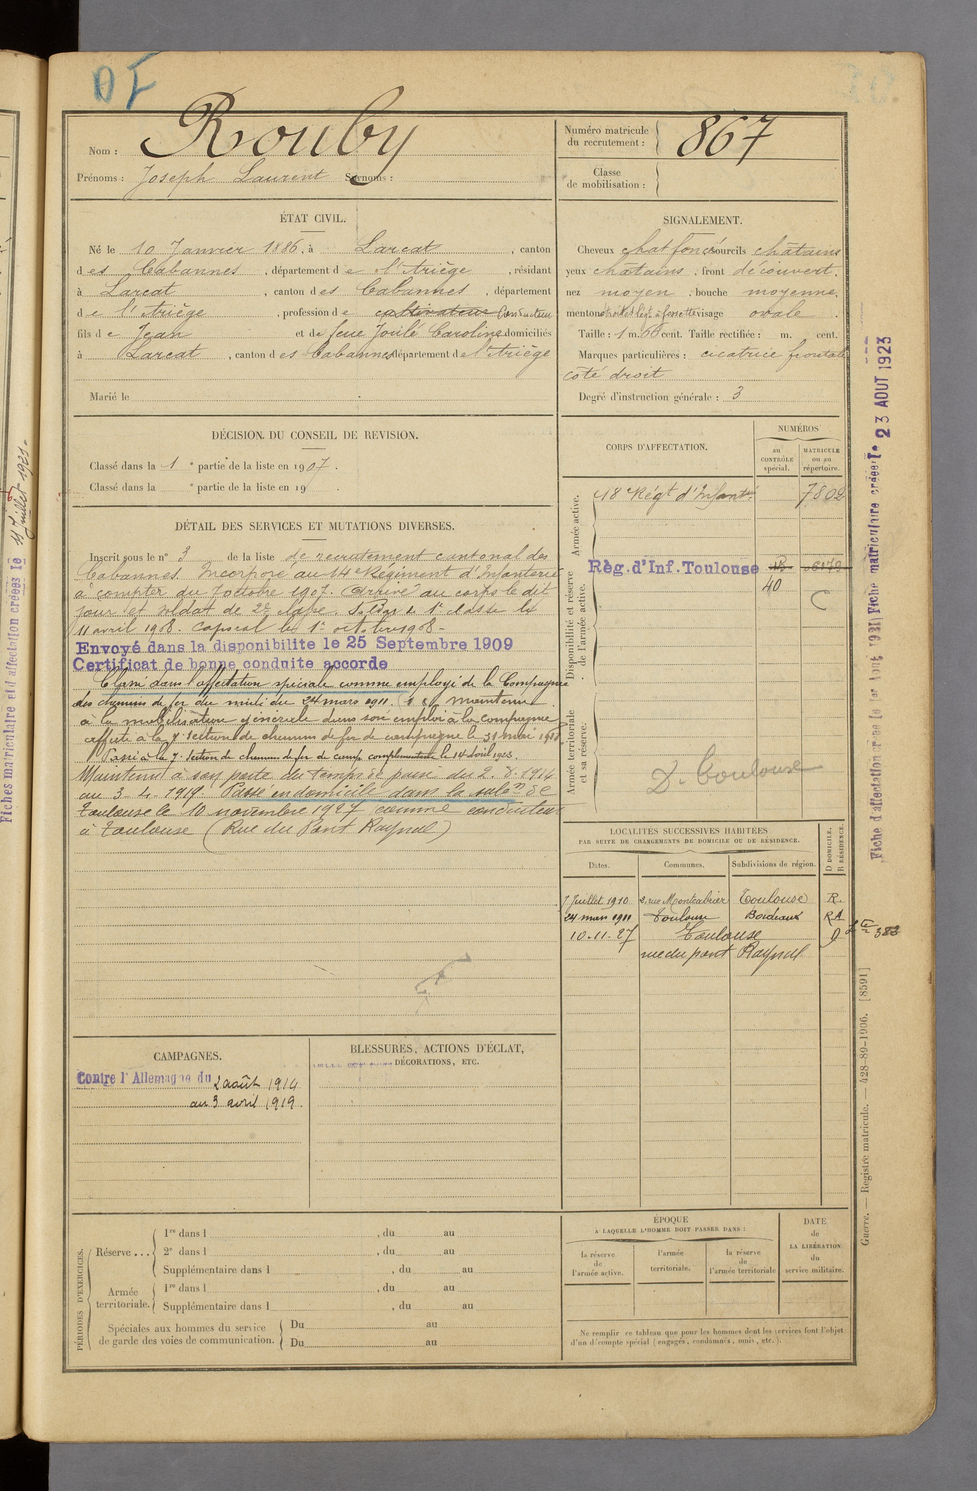 Nom : Rouby
Prénoms : Joseph Laurent Surnoms :
Numéro matricule du recrutement : 867
Classe de mobilisation :
ÉTAT CIVIL.
Né le 10 Janvier 1886, à Larcat, canton
des Cabannes, département de l'Ariège, résidant
à Larcat, canton des Cabannes, département
de l'Ariège, profession de cultivateur Conducteur
fils de Jean et de feue Joulé Caroline domiciliés
à Larcat, canton des Cabannes département de l'Ariège
Marié le
SIGNALEMENT.
Cheveux chat foncé sourcils châtains
yeux châtains, front découvert,
nez moyen, bouche moyenne,
menton visage ovale
Taille : 1 m. 66 cent. Taille rectifiée : m. cent.
Marques particulières : cicatrice frontale
côté droit
Degré d'instruction générale : 3
DÉCISION DU CONSEIL DE REVISION.
Classé dans la 1e partie de la liste en 1907.
Classé dans la e partie de la liste en 19
DÉTAIL DES SERVICES ET MUTATIONS DIVERSES.
Inscrit sous le n° 3 de la liste de recrutement cantonal des
Cabannes. Incorporé au 14e Régiment d'Infanterie
à compter du 7 octobre 1907. Arrivé au corps le dit
jour et soldat de 2e classe. Soldat de 1e classe le
11 avril 1908. Caporal le 1er octobre 1908.
Envoyé dans la disponibilite le 25 Septembre 1909
Certificat de bonne conduite accorde
Classé dans l'affectation spéciale comme employé de la Compagnie
des chemins de fer du midi du 24 mars 1911. maintenu
à la mobilisation générale dans son emploi à la compagnie
affecté à la 7e section de chemins de fer de campagne le 31 mai
Passé à la 7e Section de chemins de fer de camp. complémentaire le 14 Aoûl 1923.
Maintenu à son poste du temps de paix du 2. 8. 1914
au 3-4-1919. Passé en domicile dans la subon de
Toulouse le 10 novembre 1927 comme conducteur
à Toulouse (Rue du Pont Raynal)
CORPS D'AFFECTATION.
NUMÉROS
au CONTRÔLE spécial.
MATRICULE ou au répertoire.
Armée active.
18e Régt d'Infanterie 7802
Disponibilité et réserve de l'armée active.
Règ. d'Inf. Toulouse
40
C
Armée territoriale et sa réserve.
D. Toulouse
LOCALITÉS SUCCESSIVES HABITÉES
PAR SUITE DE CHANGEMENTS DE DOMICILE OU DE RÉSIDENCE.
D DOMICILE. R RÉSIDENCE.
Dates. Communes. Subdivisions de région.
7 Juillet 1910 2, rue Montcabrier Toulouse R.
24 mars 1911 Toulouse Bordeaux RA
10-11-27 Toulouse D
rue du pont Raynal
383
CAMPAGNES.
Contre l'Allemagne du 2 août 1914
au 3 avril 1919.
BLESSURES, ACTIONS D'ÉCLAT,
DÉCORATIONS, ETC.
PÉRIODES D'EXERCICES.
Réserve... 1re dans l , du au
2e dans l , du au
Supplémentaire dans l , du au
Armée territoriale. 1re dans l , du au
Supplémentaire dans l , du au
Spéciales aux hommes du service de garde des voies de communication. Du au
Du au
ÉPOQUE
À LAQUELLE L'HOMME DOIT PASSER DANS :
la réserve de l'armée active.
l'armée territoriale.
la réserve de l'armée territoriale
DATE de LA LIBÉRATION du service militaire.
Ne remplir ce tableau que pour les hommes dont les services font l'objet
d'un décompte spécial (engagés, condamnés, omis, etc.).
Guerre. — Registre matricule. — 428-89-1906. [8591]
Fiche d'affectation créée le 1er Août 1931 Fiche matriculaire créée le 23 AOUT 1923
Fiches matriculaire et d'affectation créées le Juillet 1921